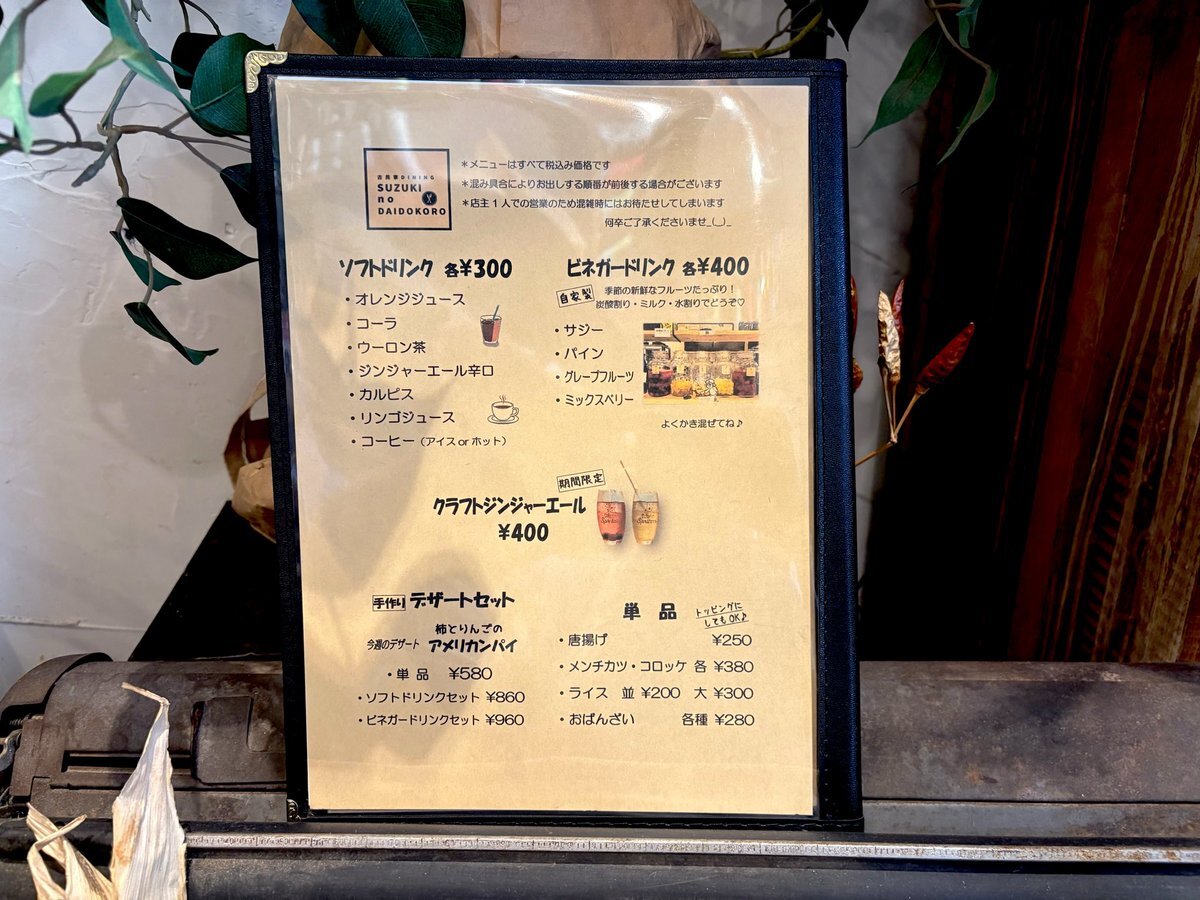 古民家DINING
SUZUKI
no
DAIDOKORO
＊メニューはすべて税込み価格です
＊混み具合によりお出しする順番が前後する場合がございます
＊店主１人での営業のため混雑時にはお待たせしてしまいます
何卒ご了承くださいませ_(._.)_
ソフトドリンク 各¥300
・オレンジジュース
・コーラ
・ウーロン茶
・ジンジャーエール辛口
・カルピス
・リンゴジュース
・コーヒー（アイス or ホット）
ビネガードリンク 各¥400
自家製
季節の新鮮なフルーツたっぷり！
炭酸割り・ミルク・水割りでどうぞ♡
・サジー
・パイン
・グレープフルーツ
・ミックスベリー
よくかき混ぜてね♪
期間限定
クラフトジンジャーエール
¥400
手作り デザートセット
柿とりんごの
今週のデザート アメリカンパイ
・単品 ¥580
・ソフトドリンクセット ¥860
・ビネガードリンクセット ¥960
単 品
トッピングに
してもOK♪
・唐揚げ ¥250
・メンチカツ・コロッケ 各 ¥380
・ライス 並 ¥200 大 ¥300
・おばんざい 各種 ¥280